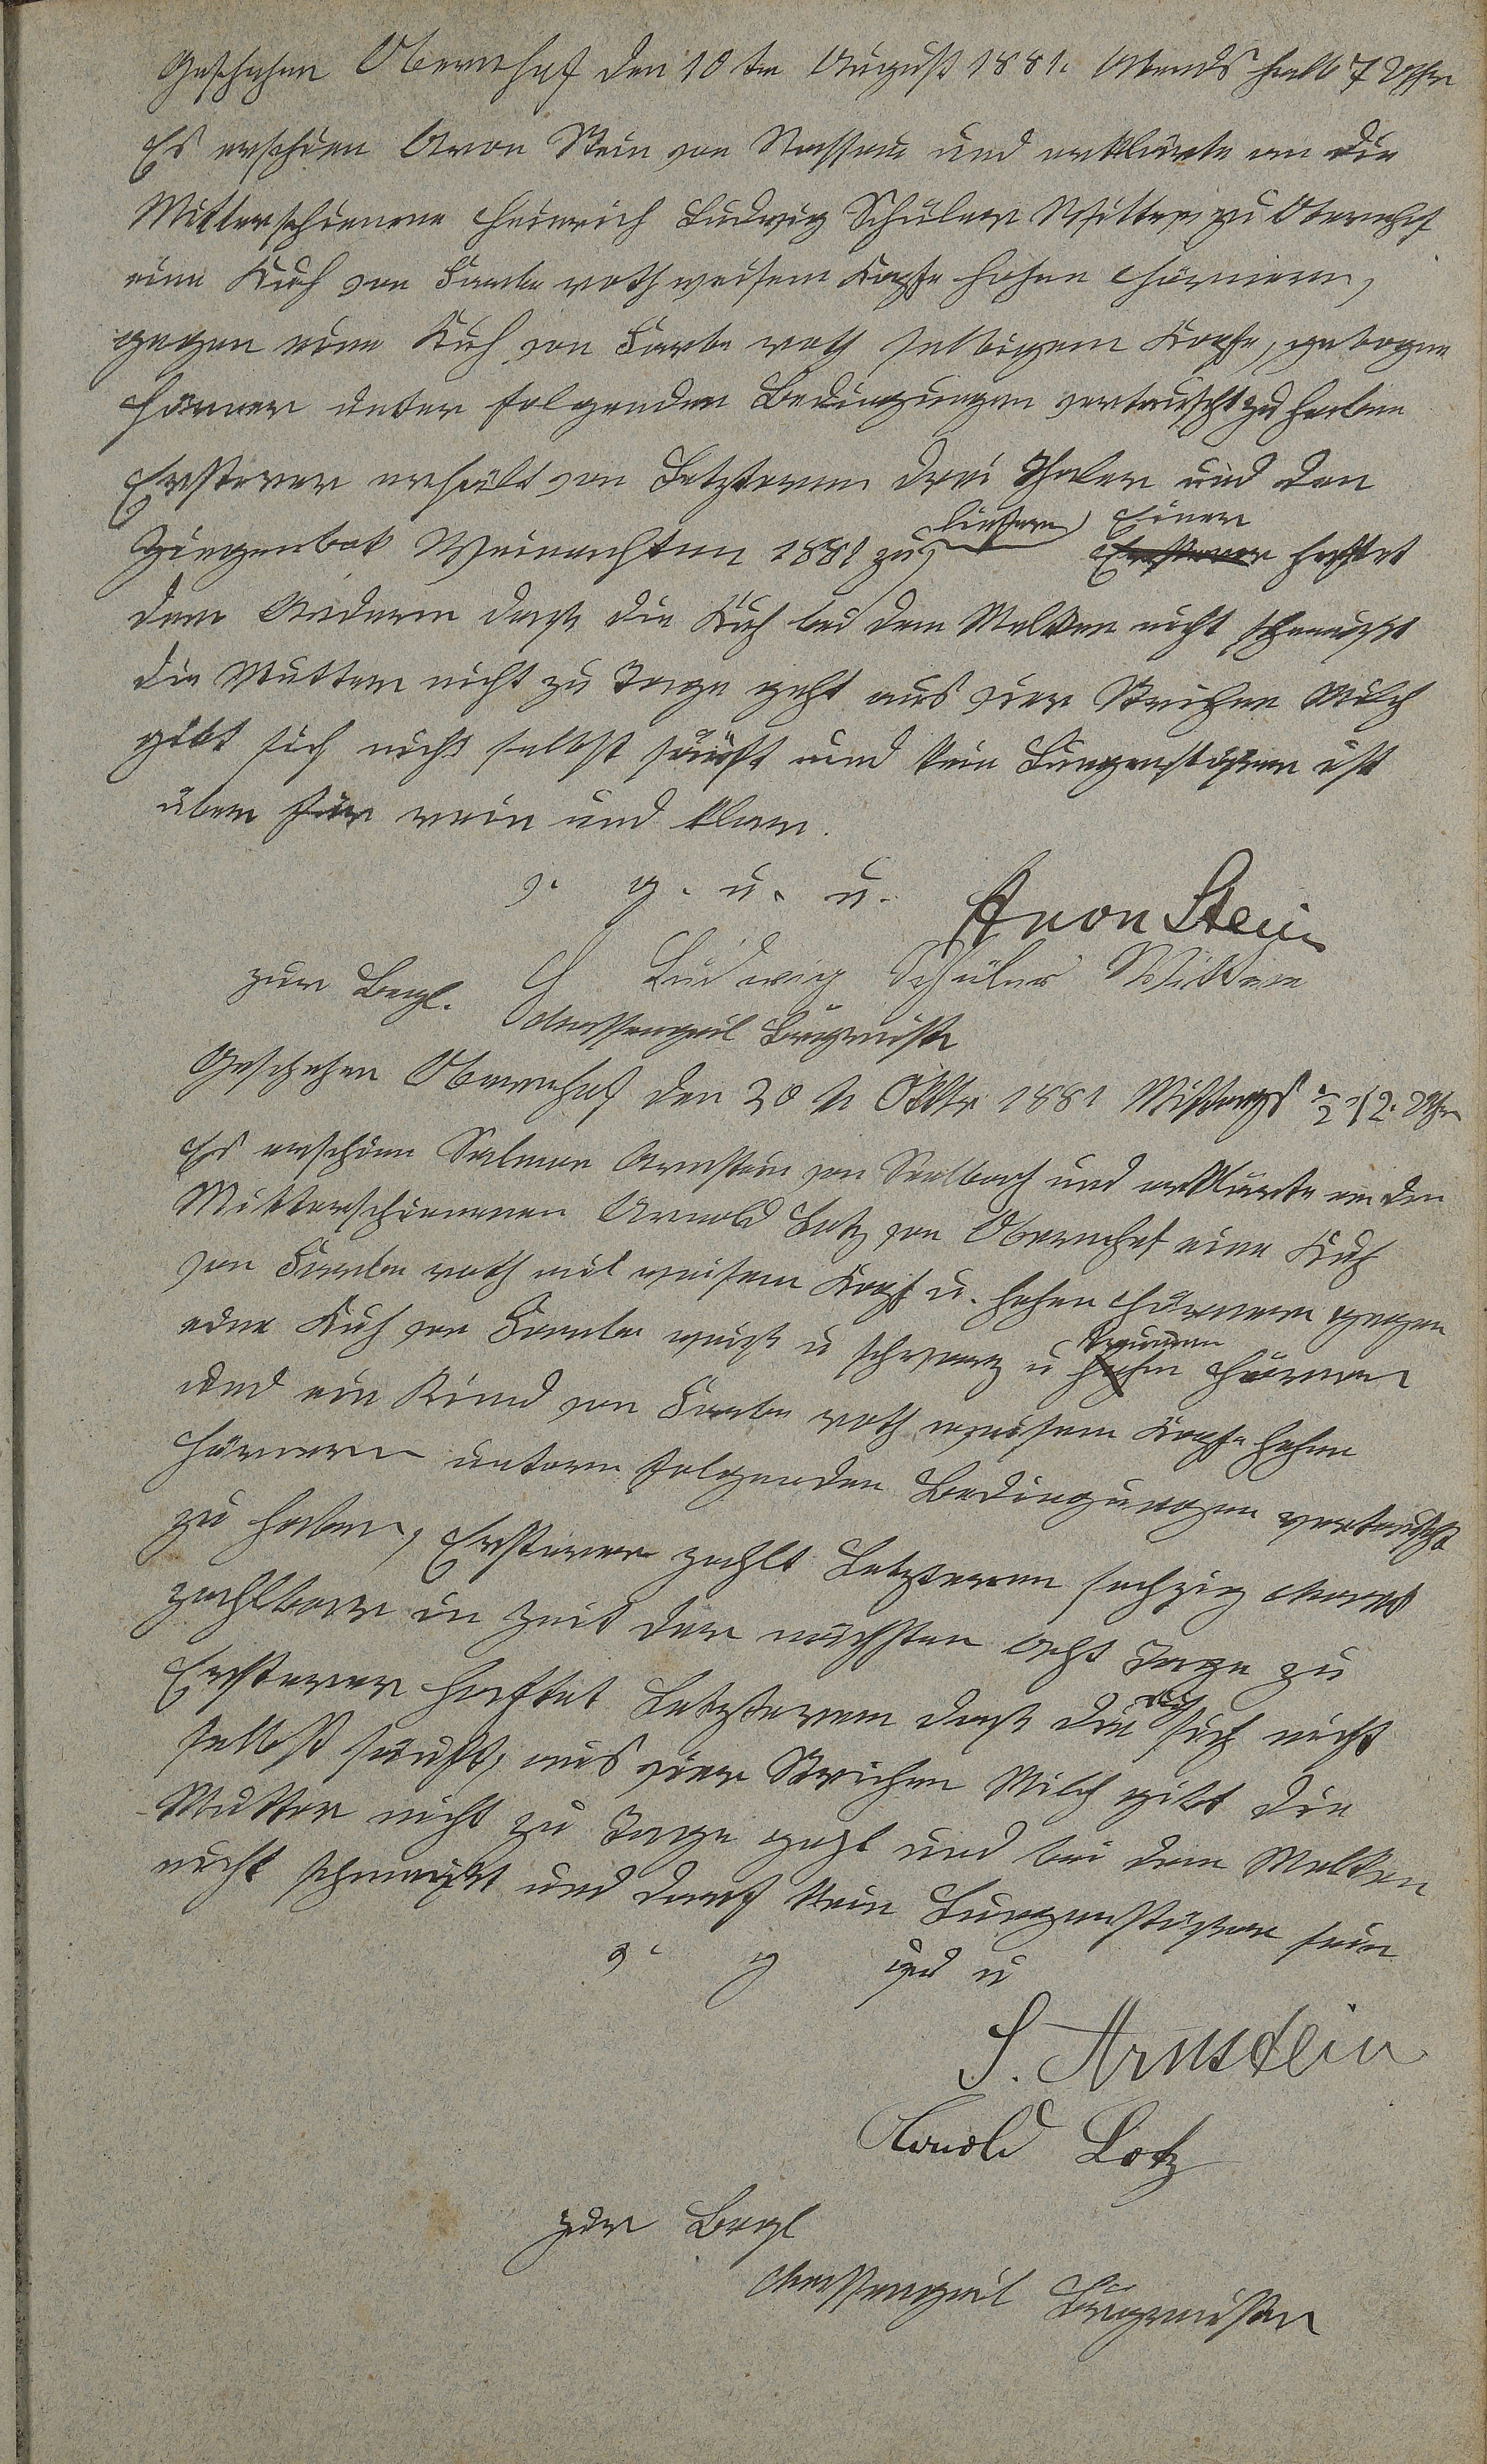 Geschehen Obernhof den 10 ten August 1881. Abends halb 7 Uhr
Es erschien Aron Stein von Nassau und erklärte an die
Mitterschienene Heinrich Ludwig Schüler Wittwe zu Obernhof
eine Kuh von Farbe roth weisem Kopfe hohen Hörnern,
gegen eine Kuh von Farbe roth selbigem Kopfe, gebogne
Hörner unter folgenden Bedingungen vertauscht zu haben
Ersterer erhält von Letzterem drei Thaler und den
Ziegenbok Weinachten 1881 zu liefern Einer Ersterer haftet
dem Anderen daß die Kuh bei dem Melken nicht schmeißt
die Mutter nicht zu Tage geht aus vier Strichen Milch
gibt sich nicht selbst säuft und kein Lungenstößer ist
über für rein und klar.
v. g. u. u. Aron Stein
H Ludwig Schüler Wittwe
zur Begl.
Bürgmstr
Geschehen Obernhof den 20 ten Oktbr 1881 Mittags 1/2 12. Uhr
Es erschien Salman Arnstein von Seelbach und erklärte an den
Mitterschienenen Arnold Lotz von Obernhof eine Kuh
von Farbe roth mit weisem Kopf u. hohen Hörnern gegen
eine Kuh von Farbe weiß u schwarz u hohen Hörner
und ein Rind von Farbe roth weisem Kopfe hohen
Hörnern unter folgenden Bedingungen vertauscht
zu haben, Ersterer zahlt Letzterem sechzig Mark
zahlbar in Zeit der nächsten acht Tage zu
Ersterer haftet Letzterem daß die Kuh sich nicht
selbst säuft, aus vier Strichen Milch gibt die
Mutter nicht zu Tage geht und bei dem Melken
nicht schmeißt und darf kein Lungenstößer sein
v. g und u
S. Arnstein
Arnold Lotz
zur Begl
Bürgmeister